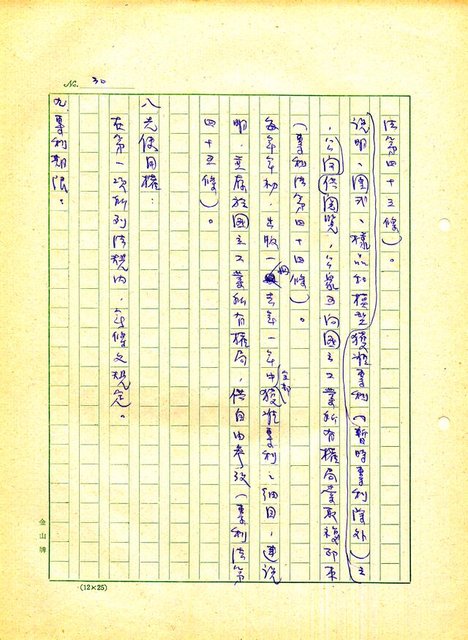 No. 30
法第四十三條)。
說明、圖式、樣品和模型獲准專利(暫時專利除外)之
,公開供閱覽,公眾可向國立工業所有權局索取複印本
(專利法第四十四條)。
每年年初,出版一册去年一年中全部獲准專利之細目,連說
明,並存放於國立工業所有權局,供自由參改(專利法第
四十五條)。
八、先使用權:
在第一次所列法規內,無條文規定。
九、專利期限:
金山牌
(12×25)